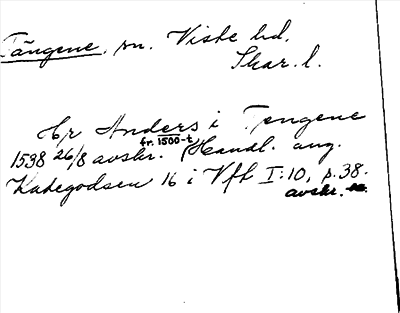 Tängene, sn. Viste hd.
Skar. l.
Hr Anders i Tengene
fr. 1500-t
1538 26/8 avskr. (Handl. ang.
Kadegodsen 16 i Vfl I:10, p. 38.
avskr.